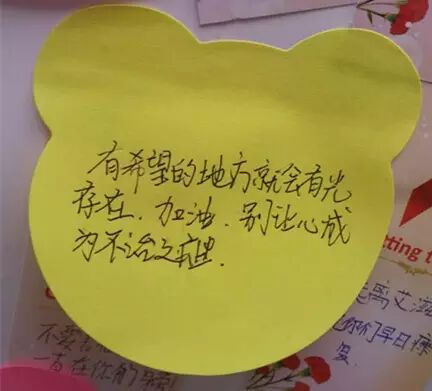 有希望的地方就会有光
存在.加油.别让心成
为不治之症.
tting t
离艾滋
你们早日康
复.
一直在你们身